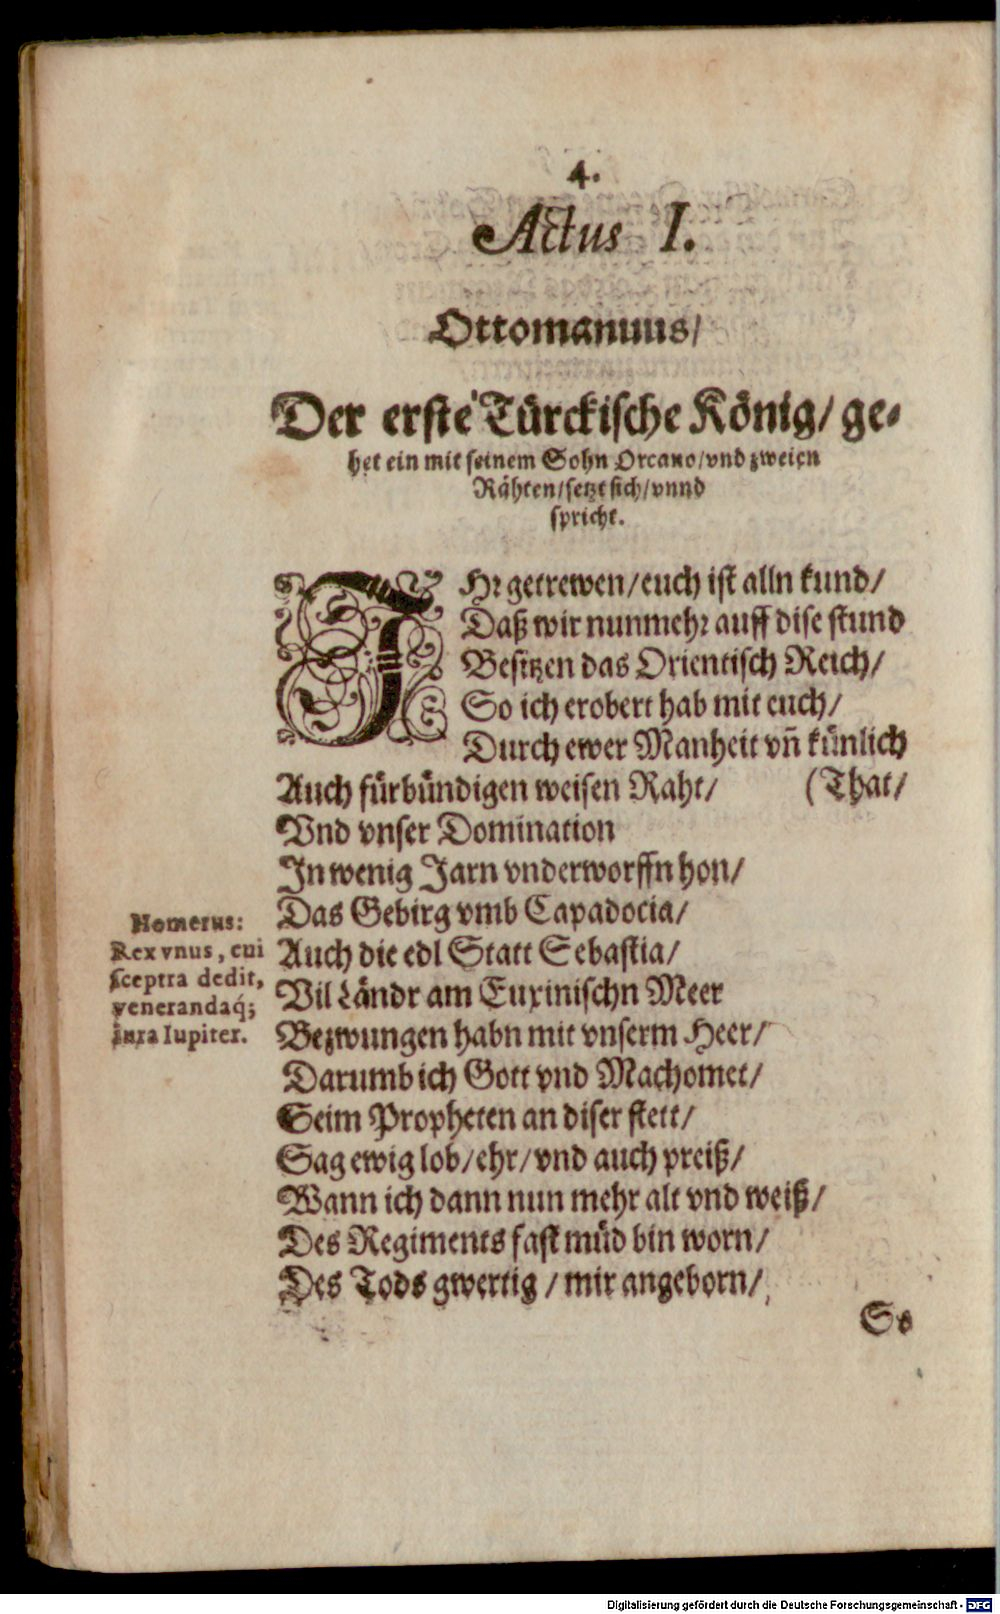 4.
Actus I.
Ottomannus/
Der erste Türckische König/ ge-
het ein mit seinem Sohn Orcano/vnd zweien
Rähten/setzt sich/vnnd
spricht.
IHr getrewen/euch ist alln kund/
Daß wir nunmehr auff dise stund
Besitzen das Orientisch Reich/
So ich erobert hab mit euch/
Durch ewer Manheit vn̄ künlich
Auch fürbündigen weisen Raht/ (That/
Vnd vnser Domination
In wenig Jarn vnderworffn hon/
Das Gebirg vmb Capadocia/
Auch die edl Statt Sebastia/
Vil Ländr am Euxinischn Meer
Bezwungen habn mit vnserm Heer/
Darumb ich Gott vnd Machomet/
Seim Propheten an diser stett/
Sag ewig lob/ehr/vnd auch preiß/
Wann ich dann nun mehr alt vnd weiß/
Des Regiments fast müd bin worn/
Des Tods gwertig/mir angeborn/
So
Homerus:
Rex vnus, cui
sceptra dedit,
venerandaq́;
iura Iupiter.
Digitalisierung gefördert durch die Deutsche Forschungsgemeinschaft - DFG